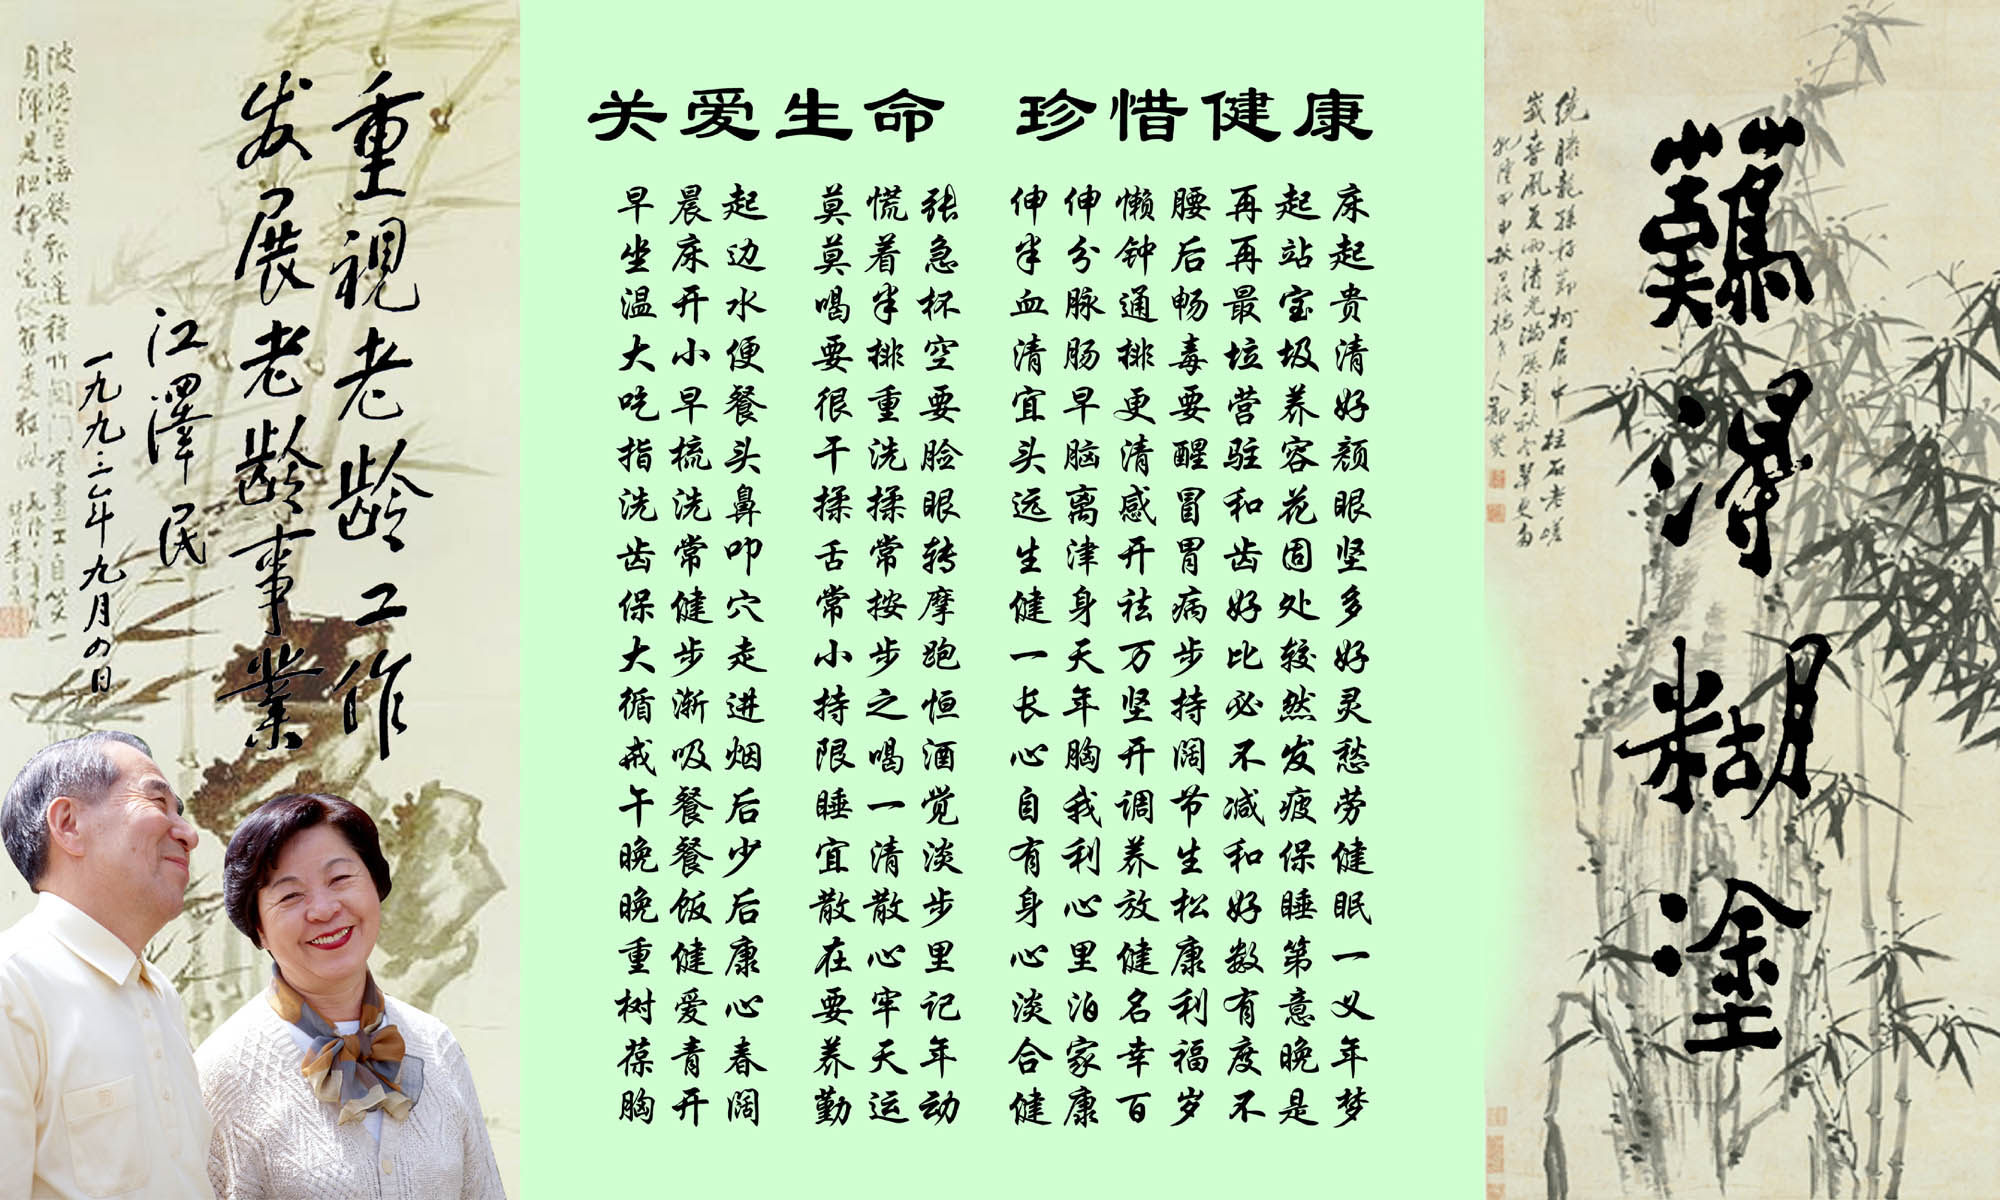 重視老龄工作
发展老龄事業
江澤民
一九九三年九月四日
关爱生命 珍惜健康
早晨起 莫慌张 伸伸懒腰再起床
坐床边 莫着急 半分钟后再站起
温开水 喝半杯 血脉通畅最宝贵
大小便 要排空 清肠排毒垃圾清
吃早餐 很重要 宜早更要营养好
指梳头 干洗脸 头脑清醒驻容颜
洗洗鼻 揉揉眼 远离感冒和花眼
齿常叩 舌常转 生津开胃齿固坚
保健穴 常按摩 健身祛病好处多
大步走 小步跑 一天万步比较好
循渐进 持之恒 长年坚持必然灵
戒吸烟 限喝酒 心胸开阔不发愁
午餐后 睡一觉 自我调节减疲劳
晚餐少 宜清淡 有利养生和保健
晚饭后 散散步 身心放松好睡眠
重健康 在心里 心里健康数第一
树爱心 要牢记 淡泊名利有意义
葆青春 养天年 合家幸福度晚年
胸开阔 勤运动 健康百岁不是梦
難得糊塗
绕膝龍孫好節柯居中柱石老嵯
峨春風夏雨清光滿到秋冬翠更多
乾隆甲申秋日板橋老人鄭燮